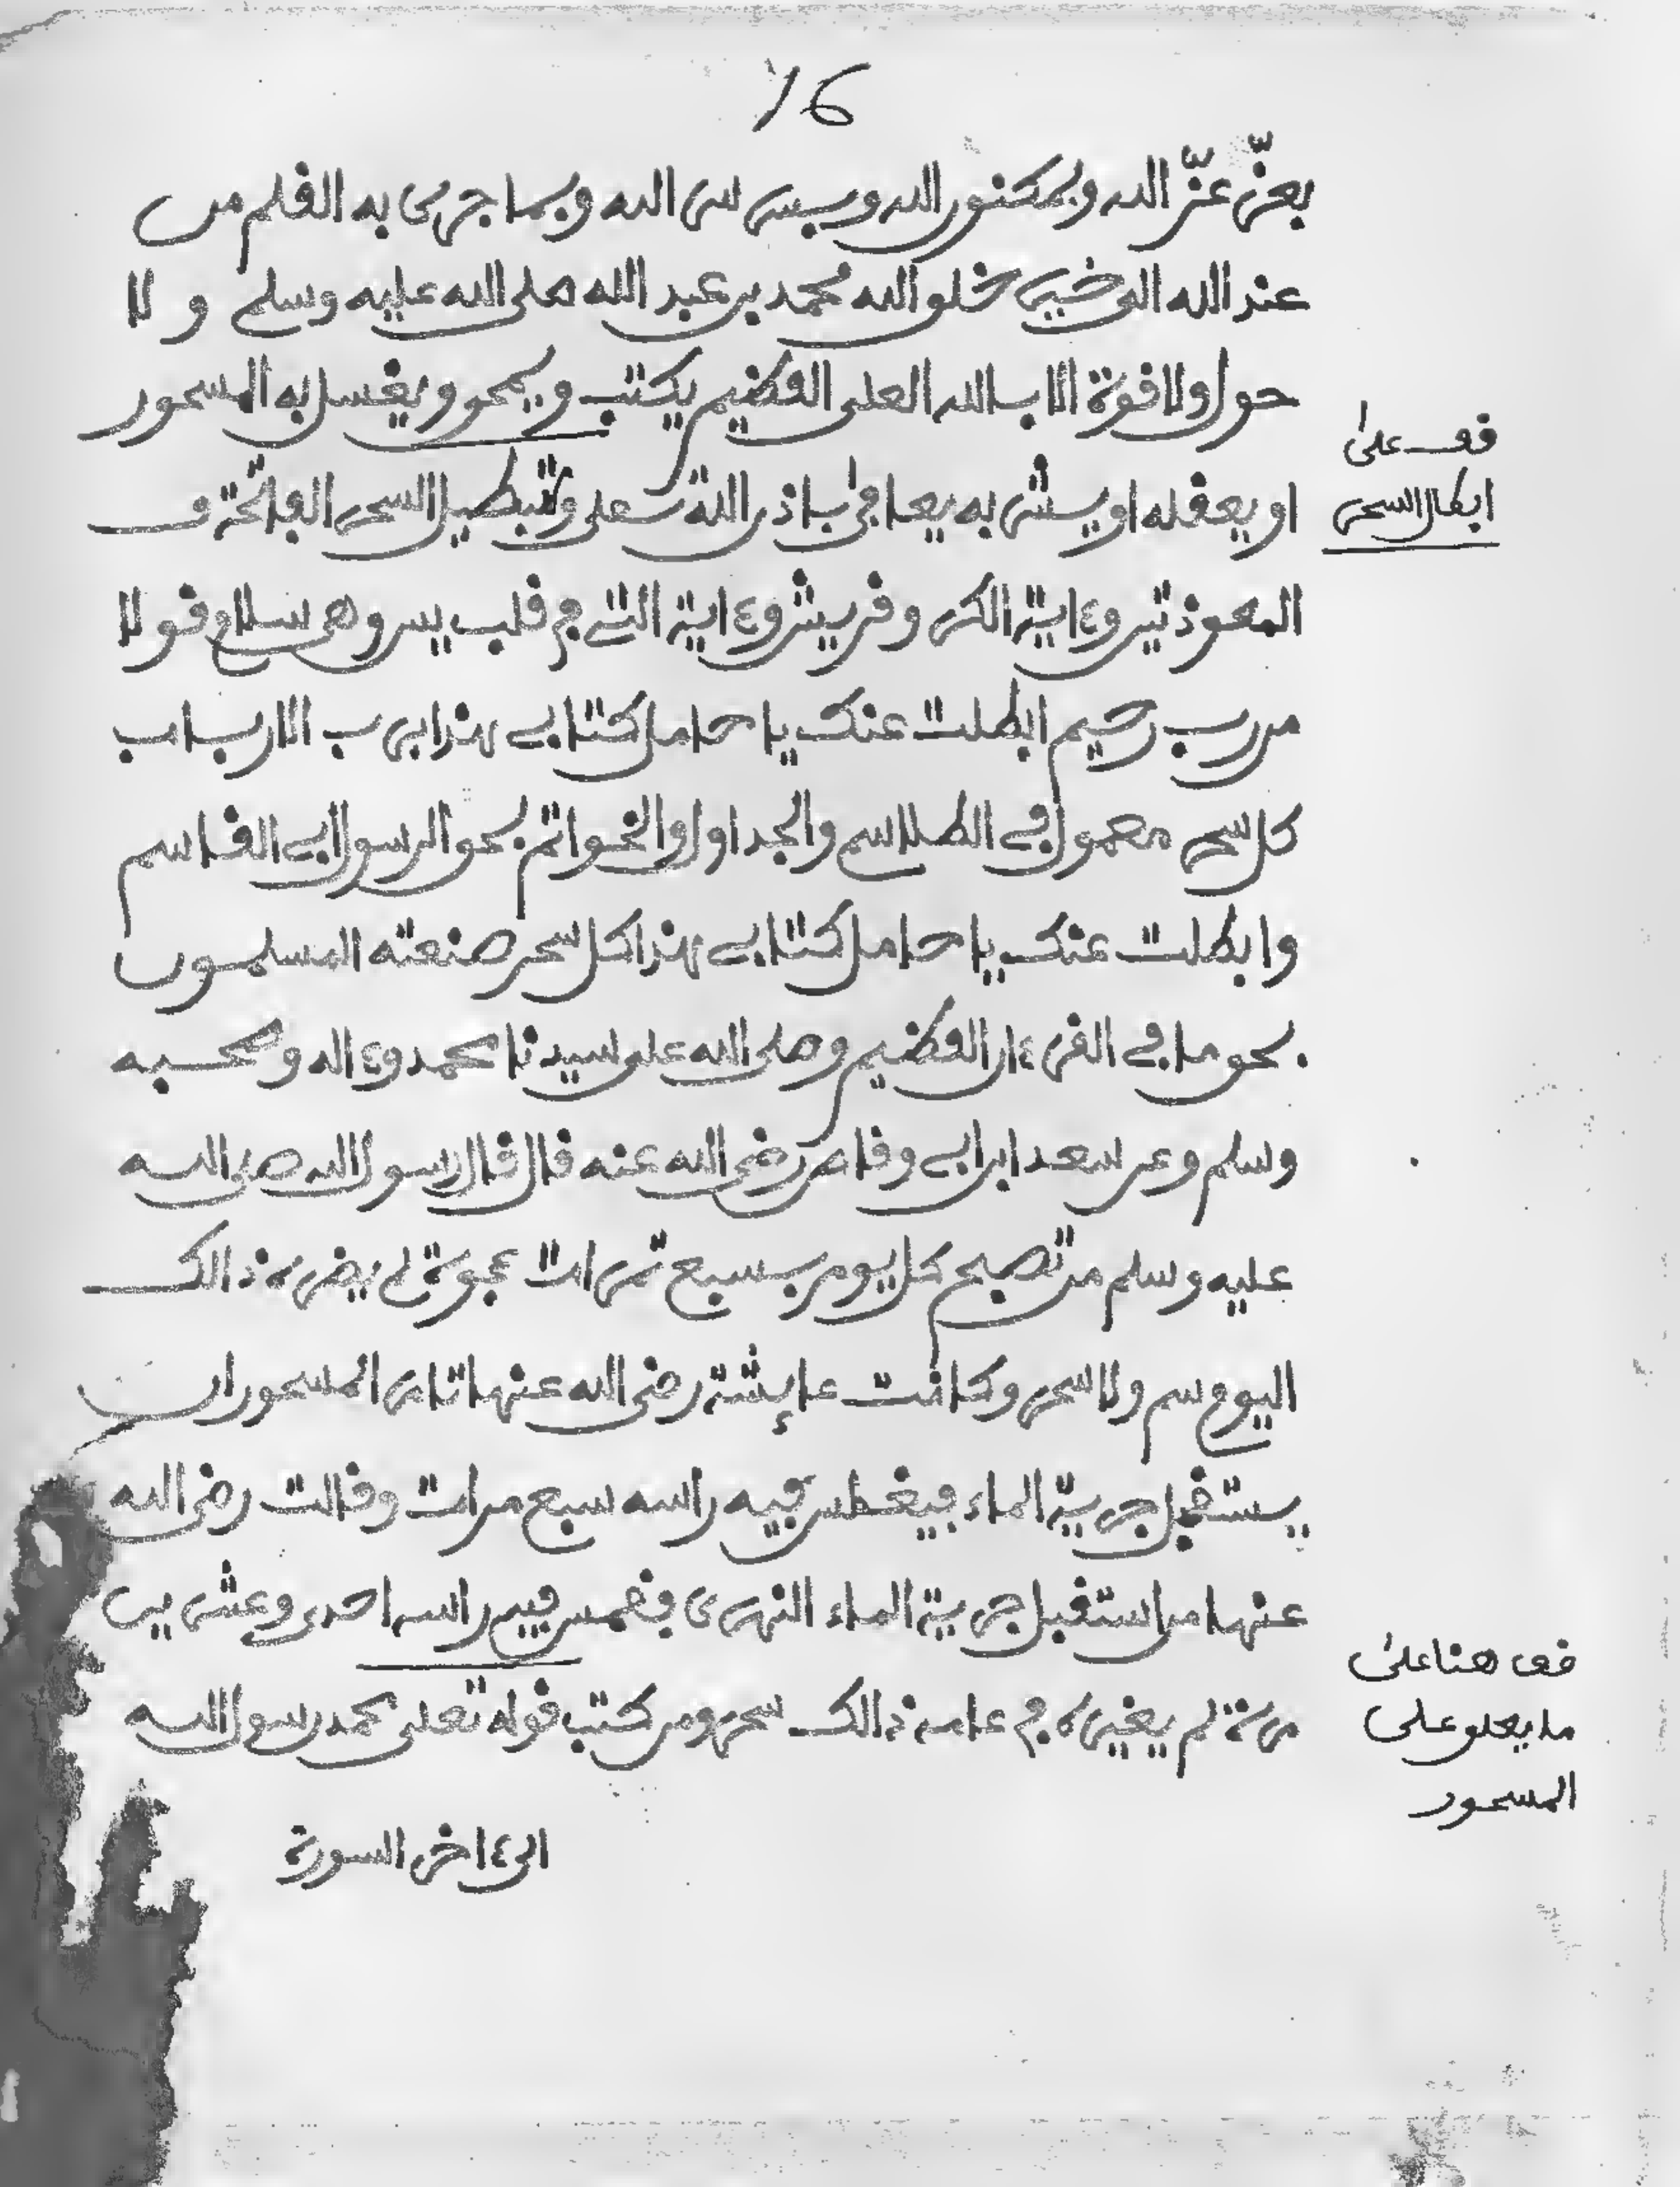 76
بعزّ عزّ الله وبمكنون الله وبسر سر الله وبما جرى به القلم من
عند الله الى خير خلق الله محمد بن عبد الله صلى الله عليه وسلم ولا
حول ولا قوة الا بالله العلي العظيم يكتب ويمحو ويغسل به المسحور
قف على
ابطال السحر
او يعقله او يسٮر به يعافى باذن الله تعلى ولتبطيل السحر الفاتحة و
المعوذتين وءاية الكر وقريش وءاية التے في قلب يس وهي سلام قولا
من رب رحيم ابطلت عنك يا حامل كتابے هذا برب الارباب
كل سحر معمول في الطلاسم والجداول والخواتم بحق الرسول ابے القاسم
وابطلت عنك يا حامل كتابے هذا كل سحر صنعته المسلمون
بحق ما في القرءان العظيم وصلى الله على سيدنا محمد وءاله وصحبه
وسلم وعن سعد ابن ابے وقاص رضي الله عنه قال قال رسول الله صلى الله
عليه وسلم من تصبح كل يوم بسبع تمرات عجوة لم يضره ذالك
اليوم سم ولا سحر وكانت عايشة رضي الله عنها تامر المسحور ان
يستقبل جرية الماء فيغطس فيه راسه سبع مرات وقالت رضي الله
عنها من استقبل جرية الماء النهرى فغمس فيه راسه احدى وعشرين
مرة لم يغيره في عامه ذالك سحر ومن كتب قوله تعلى محمد رسول الله
قف هنا على
ما يعلق على
المسحور
الى ءاخر السورة